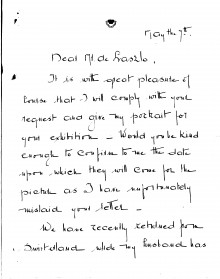 May the 7th.
Dear Mr. de Laszlo,
It is with great pleasure of
course that I will comply with your
request and give my portrait for
your exhibition - Would you be kind
enough to confirm to me the date
upon which they will come for the
picture as I have unfortunately
mislaid your letter -
We have recently returned from
Switzerland, while my husband has